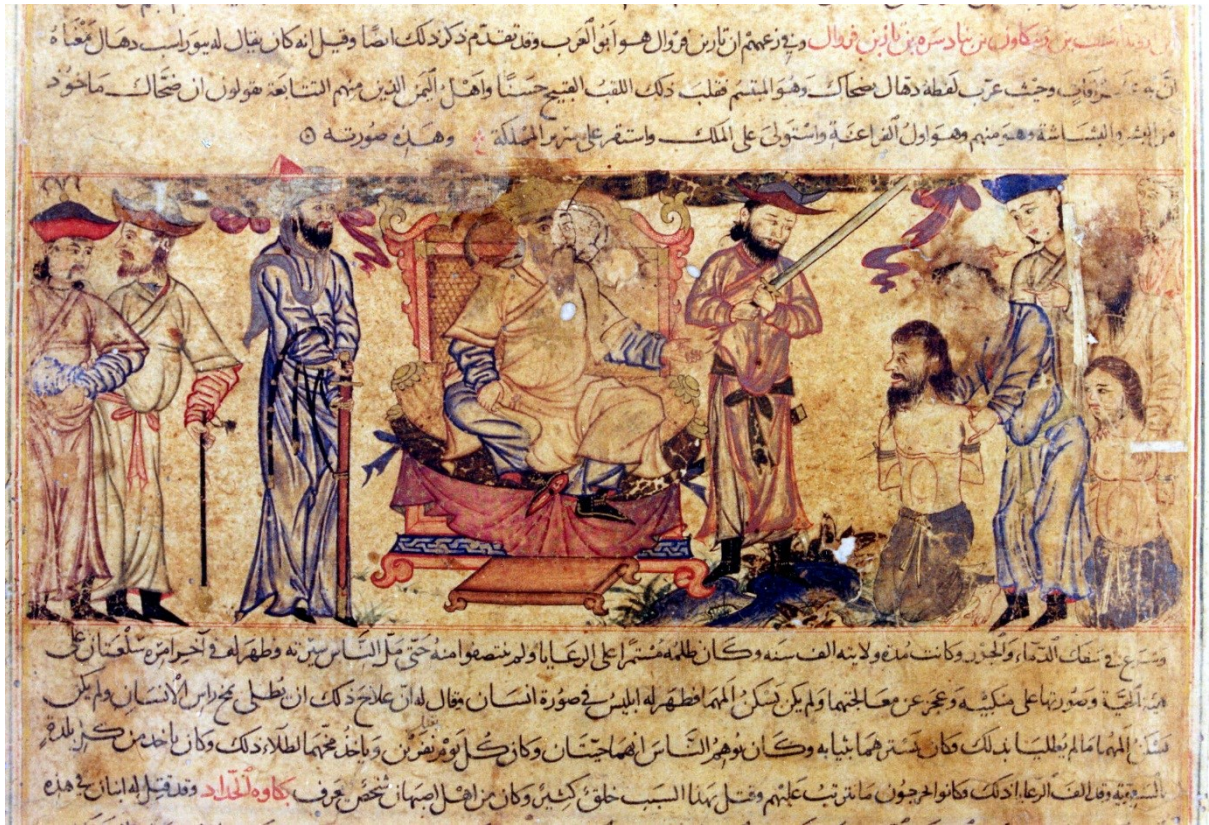 بن نادسره بن تاز بن فروال وفي زعمهم ان تاز بن فروال هو ابو العرب وقد تقدم ذكر ذلك ايضا وقيل انه كان يقال له بيوراسب دهال معناه
وحيث عرب لفظة دهال ضحاك وهو المبتسم فقلب ذلك اللقب القبيح حسنًا واهل اليمن الذين منهم التبابعة يقولون ان ضحاك ماخوذ
من البشر والبشاشة وهو منهم وهو اول الفراعنة واستولى على الملك واستقر على سرير المملكة وهذه صورته
وشرع في سفك الدماء والجور وكانت مدة ولايته الف سنه وكان ظلمه مستمرا على الرعايا ولم ينتصفوا منه حتى ملّ الناس سيرته وظهر له في آخر امره سلعتان على
هيئة الحية وصورتها على منكبيه وعجز عن معالجتهما ولم يكن يسكن المهما فظهر له ابليس في صورة انسان وقال له ان علاج ذلك ان يطلى بمخ راس الانسان ولم يكن
يسكن المهما مالم يطليا بذلك وكان يسترهما بثيابه وكان يوهم الناس انهما حيتان وكان كل يوم يقتل نفرين وياخذ مخهما لطلاء ذلك وكان ياخذ من كل بلدة
بالسوية وقد الف الرعايا ذلك وكانوا يخرجون ما يترتب عليهم وقتل بهذا السبب خلق كثير وكان من اهل اصبهان شخص يعرف بكاوه الحداد وقد قتل له ابنان في هذه